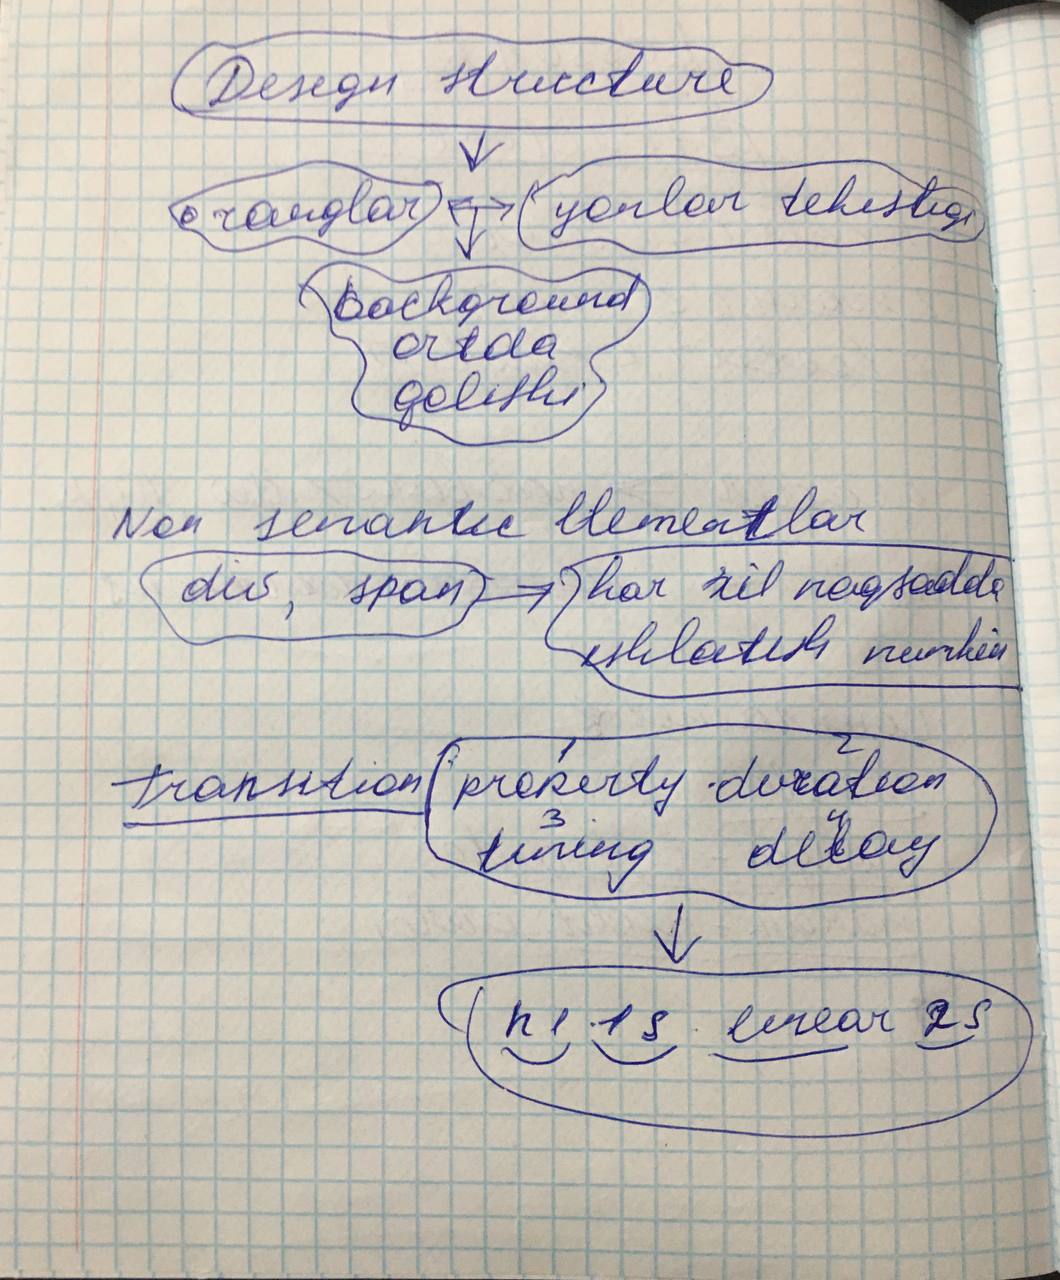 Design structure
ranglar yonlar tekisligi
background
ortda
qolishi
Non semantic elementlar
div, span har xil maqsadda
ishlatish mumkin
transition property duration
1 2
timing delay
3 4
h1 1s linear 2s